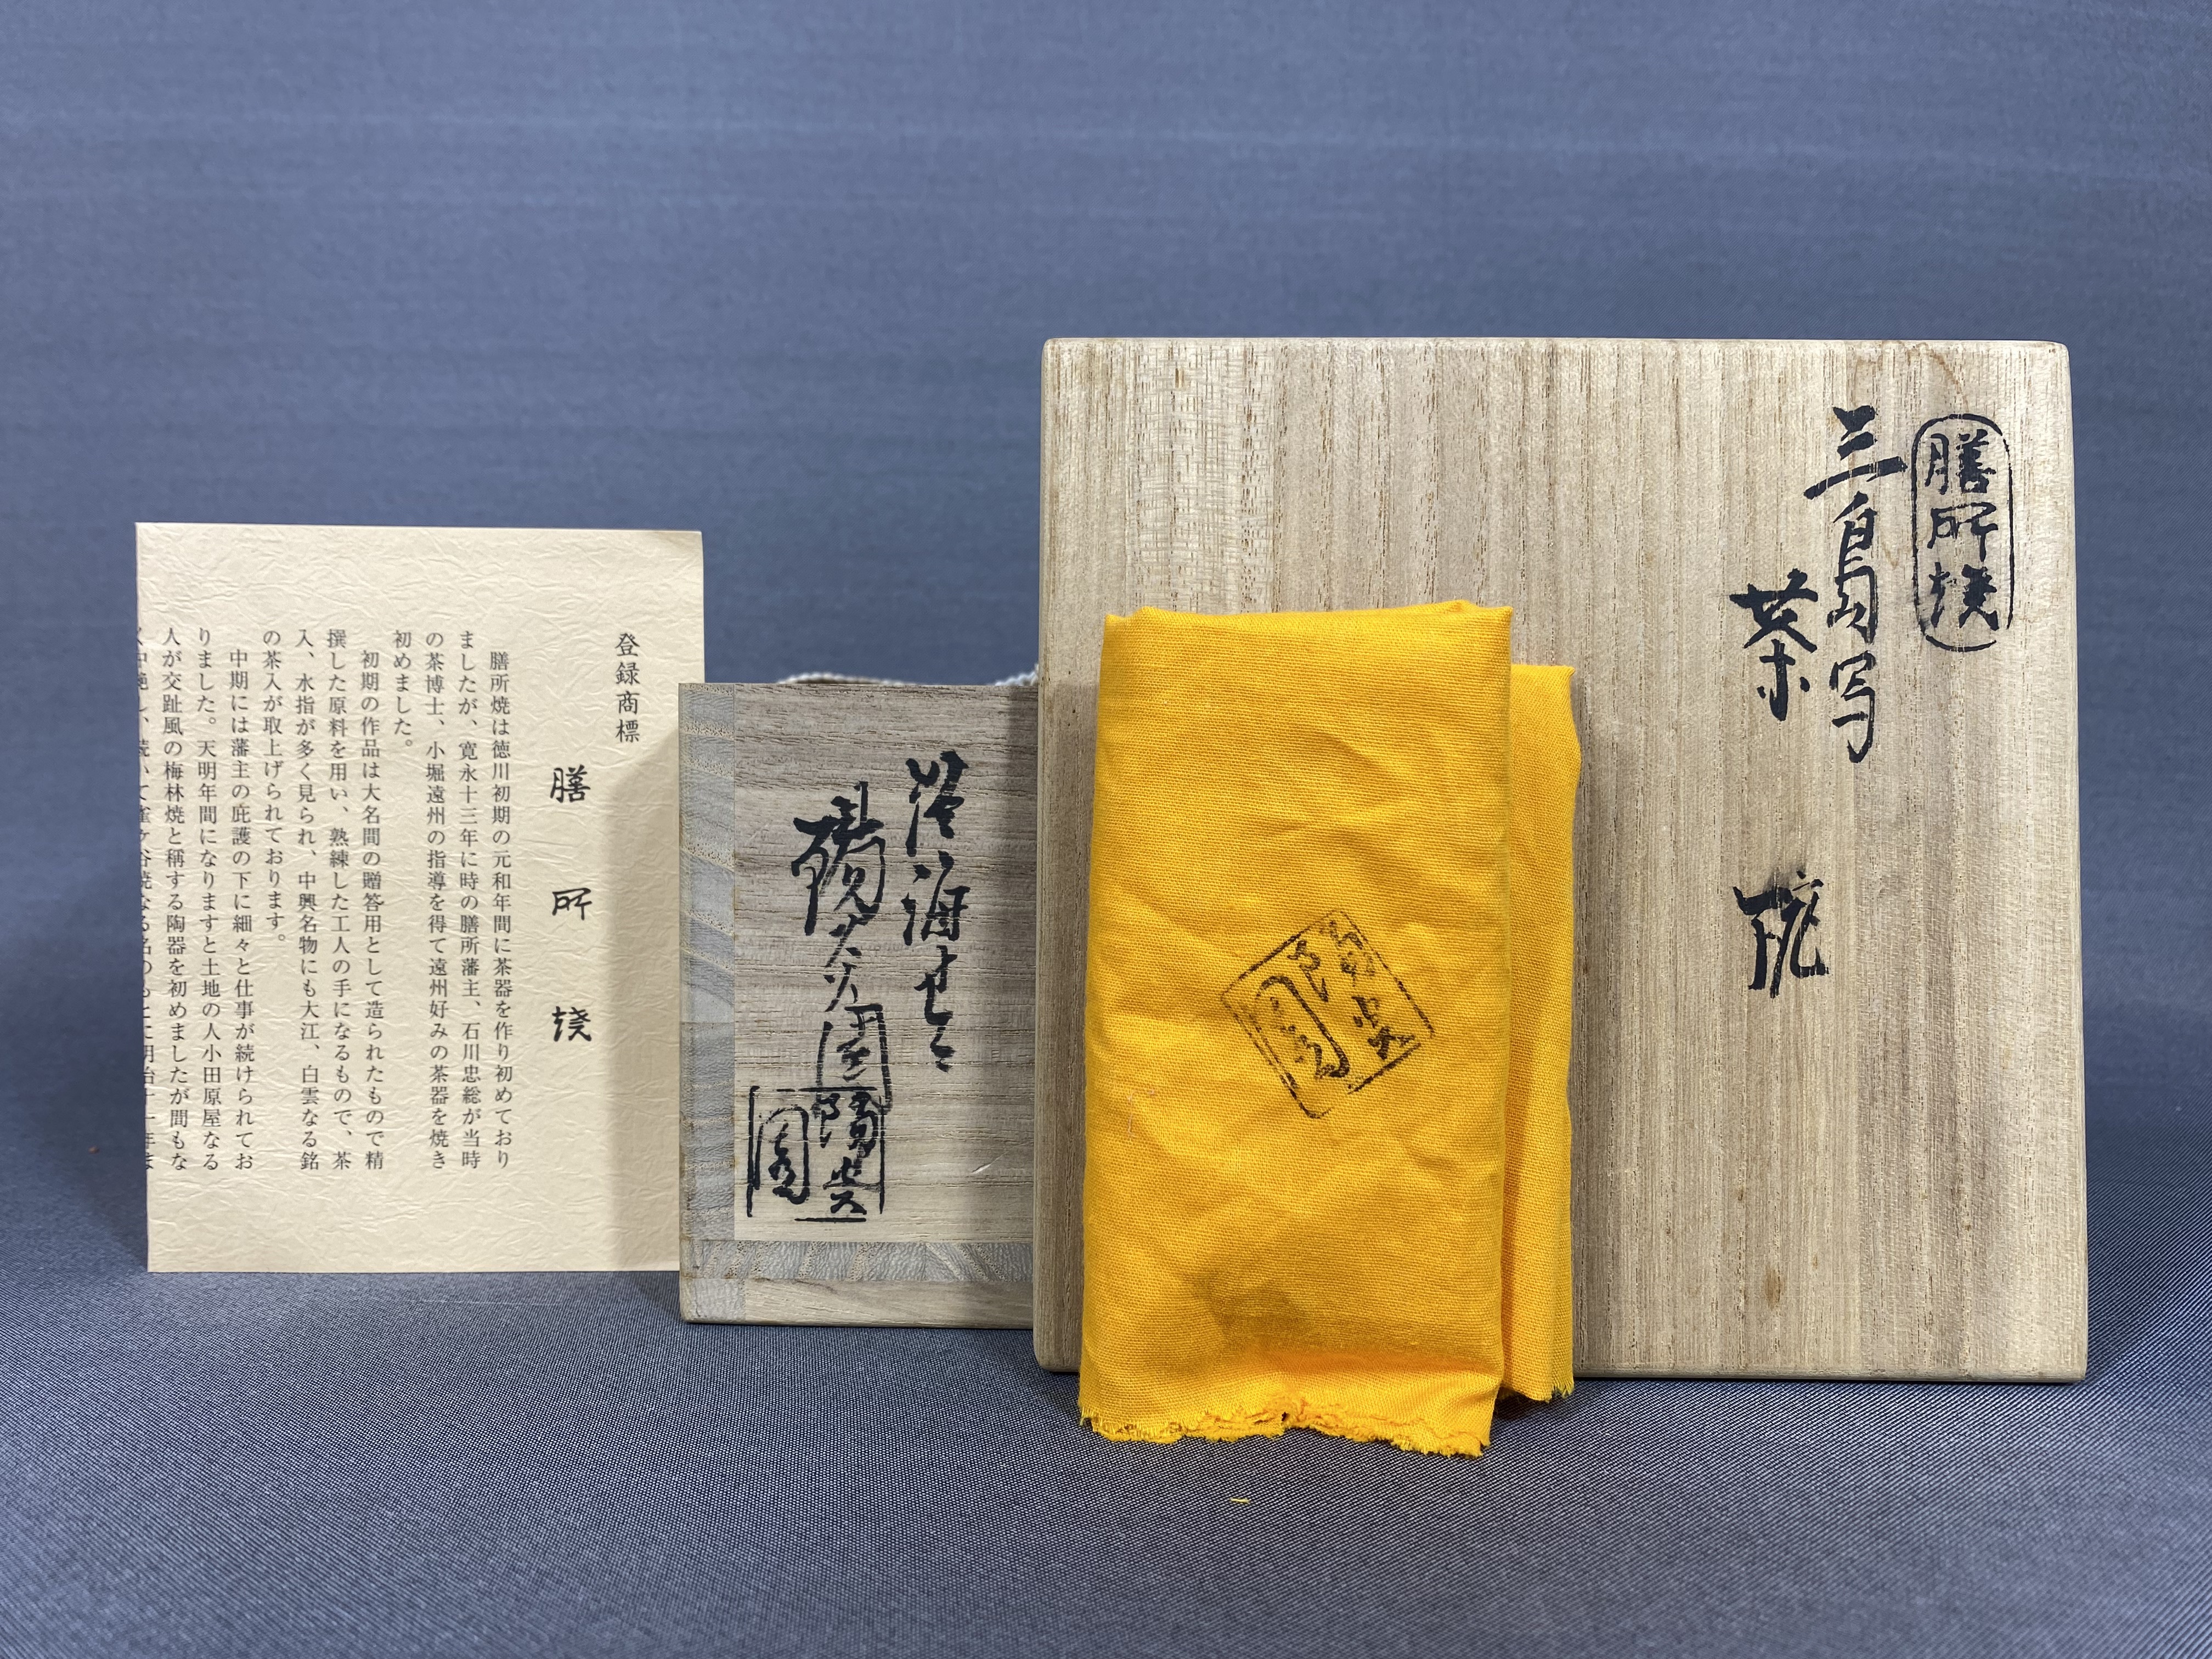 膳所焼
三島写
茶碗
陽炎
園
淡海せゝ
陽炎園
陽炎
園
登録商標
膳所焼
膳所焼は徳川初期の元和年間に茶器を作り初めており
ましたが、寛永十三年に時の膳所藩主、石川忠総が当時
の茶博士、小堀遠州の指導を得て遠州好みの茶器を焼き
初めました。
初期の作品は大名間の贈答用として造られたもので精
撰した原料を用い、熟練した工人の手になるもので、茶
入、水指が多く見られ、中興名物にも大江、白雲なる銘
の茶入が取上げられております。
中期には藩主の庇護の下に細々と仕事が続けられてお
りました。天明年間になりますと土地の人小田原屋なる
人が交趾風の梅林焼と稱する陶器を初めましたが間もな